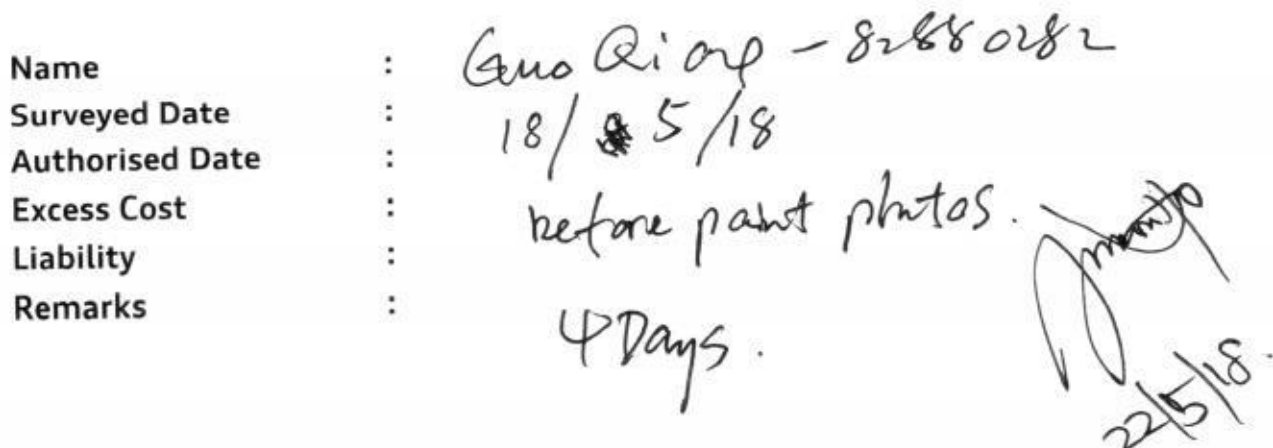 Name : Guo Qiang - 82880282
Surveyed Date : 18/5/18
Authorised Date :
Excess Cost : before paint photos.
Liability :
Remarks : 4 Days.
22/5/18.